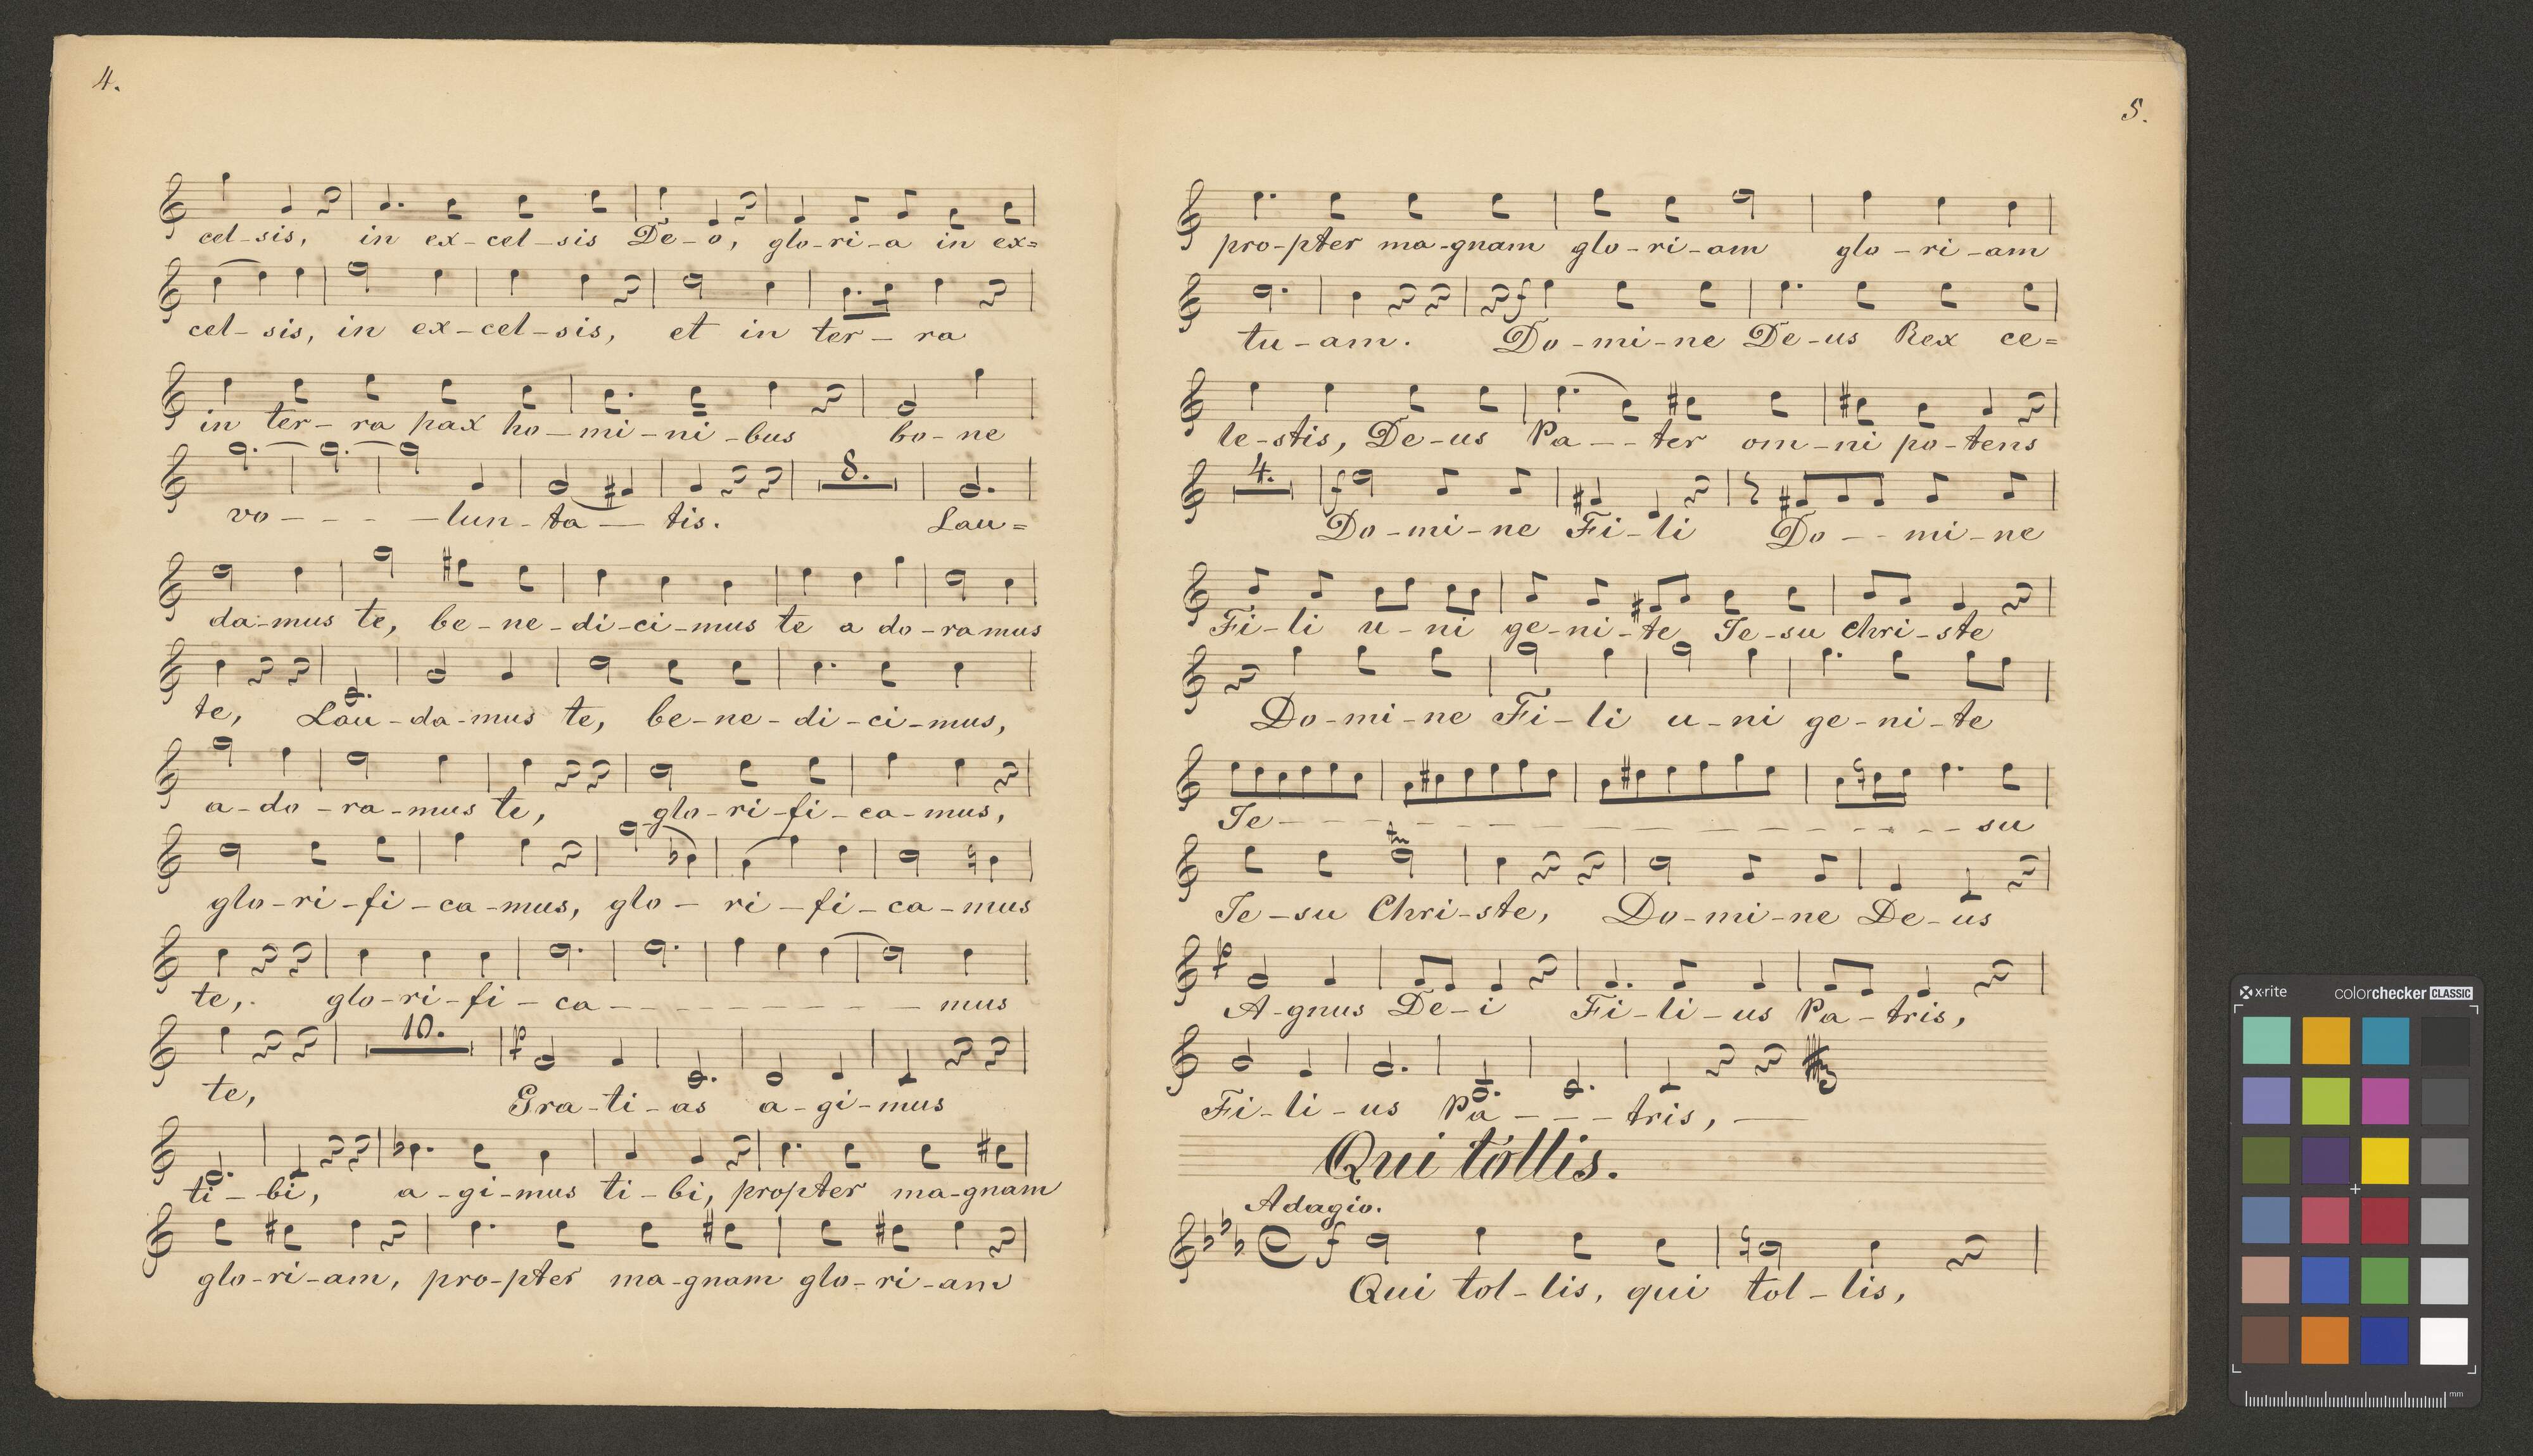 4.
cel-sis, in ex-cel-sis De-o, glo-ri-a in ex=
cel-sis, in ex-cel-sis, et in ter-ra
in ter-ra pax ho-mi-ni-bus bo-ne
8.
vo - - - -lun-ta- tis. Lau=
da-mus te, be-ne-di-ci-mus te a do-ramus
te, Lau-da-mus te, be-ne-di-ci-mus,
a-do-ra-mus te, glo-ri-fi-ca-mus,
glo-ri-fi-ca-mus, glo- ri-fi-ca-mus
te, glo-ri-fi-ca - - - - - - - mus
10.
p
te, Gra-ti-as a-gi-mus
ti-bi, a-gi-mus ti-bi, propter ma-gnam
glo-ri-am, pro-pter ma-gnam glo-ri-am
5.
pro-pter ma-gnam glo-ri-am glo-ri-am
f
tu-am. Do-mi-ne De-us Rex ce=
le-stis, De-us Pa--ter om-ni po-tens
4.
f
Do-mi-ne Fi-li Do--mi-ne
Fi-li u-ni ge-ni-te Je-su Chri-ste
Do-mi-ne Fi-li u-ni ge-ni-te
Je- - - - - - - - - - - - su
Je-su Chri-ste, Do-mi-ne De-us
p
A-gnus De-i Fi-li-us Pa-tris,
Fi-li-us Pa - - - tris, -
Qui tollis.
Adagio.
f
Qui tol-lis, qui tol-lis,
x-rite colorchecker CLASSIC
mm